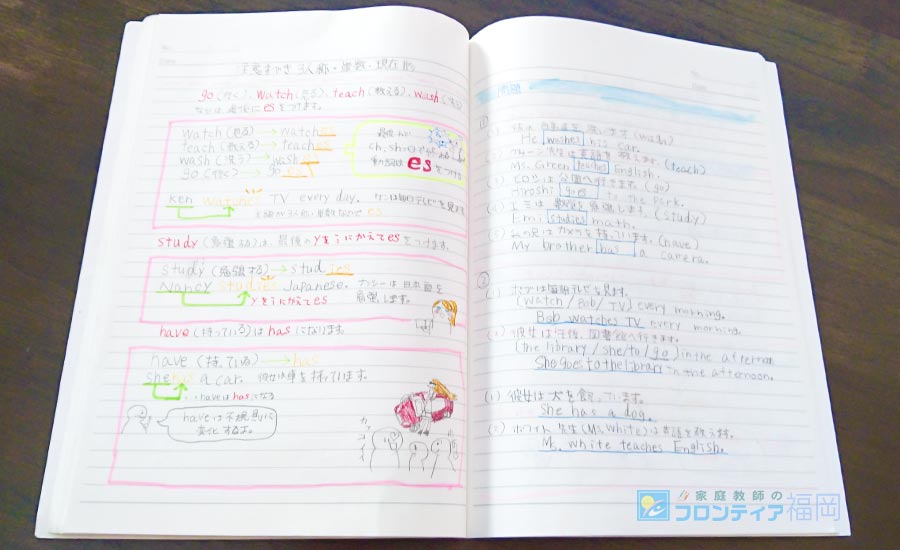 注意すべき 3人称・単数・現在形
go(行く)、watch(見る)、teach(教える)、wash(洗う)
などは、最後に es をつけます。
watch(見る)→ watches
teach(教える)→ teaches
wash(洗う)→ washes
go(行く)→ goes
ch, sh, o
動詞は es をつける
Ken watches TV every day. ケンは毎日テレビを見ます
主語が3人称・単数なので es
study(勉強する)は、最後の y を i にかえて es をつけます。
study(勉強する)→ studies
Nancy studies Japanese. ナンシーは日本語を
勉強します。
yをiにかえてes
have(持っている)は has になります
have(持っている)→ has
she has a car. 彼女は車を持っています。
haveはhasになる
haveは不規則に
変化するよ。
カッコイイ
問題
①
(1) 彼は自動車を洗います(wash)
He washes his car.
(2) グリーン先生は英語を教えます。(teach)
Mr. Green teaches English.
(3) ヒロシは公園へ行きます。(go)
Hiroshi goes the park.
(4) エミは数学を勉強します。(study)
Emi studies math.
(5) 私の兄はカメラを持っています。(have)
My brother has a camera.
②
(1) ボブは毎朝テレビを見ます。
(watch / Bob / TV) every morning.
Bob watches TV every morning.
(2) 彼女は午後、図書館へ行きます。
(the library / she / to / go) in the afternoon
She goes to the library in the afternoon.
(1) 彼女は犬を飼っています。
She has a dog.
(2) ホワイト先生(Ms. White)は英語を教えます。
Ms. White teaches English.
家庭教師の
フロンティア福岡